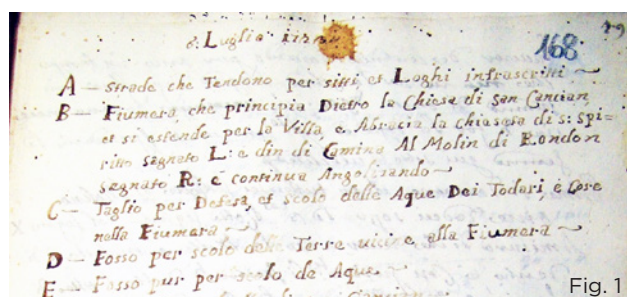 8. Luglio
168
A — Strade che Tendono per sitti et Loghi infrascritti ~
B — Fiumera, che principia Dietro la Chiesa di San Cancian,
et si estende per la Villa, e Abracia la chiasesa di s: spi-
rito segnato L: e din di Camino Al Molin di Rondon
segnato R: e continua Angolizando ~
C — Taglio per Defesa, et scolo delle Aque Dei Todari, e Core
nella Fiumera ~
D — Fosso per scolo delle Terre vicine alla Fiumera ~
E — Fosso pur per scolo de Aque ~
Fig. 1